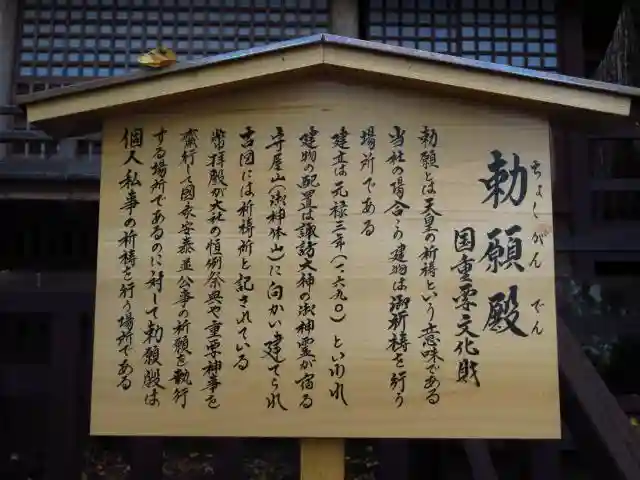 勅願殿
ちょくがんでん
国重要文化財
勅願とは天皇の祈祷という意味である
当社の場合この建物は御祈祷を行う
場所である
建立は元禄三年(一六九〇)といわれ
建物の配置は諏訪大神の御神霊が宿る
守屋山(御神体山)に向かい建てられ
古図には祈祷所と記されている
常拝殿が大社の恒例祭典や重要神事を
齋行して国家安泰並公事の祈願を執行
する場所であるのに対して勅願殿は
個人私事の祈祷を行う場所である